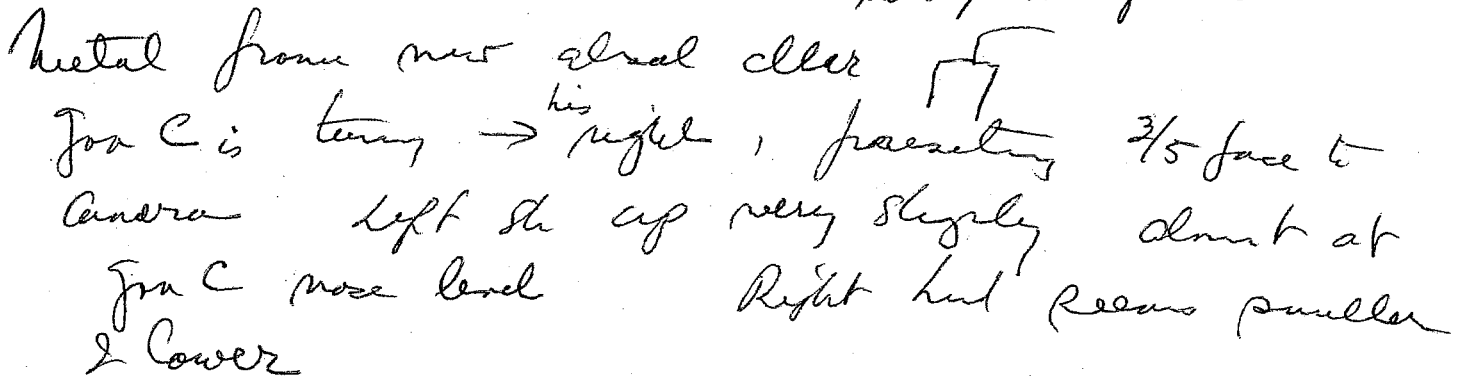 Metal frame now
Gov C is turning → his right, presenting 3/5 face to
Camera Left sh up very slightly almost at
Gov C nose level Right hand seems smaller
& lower